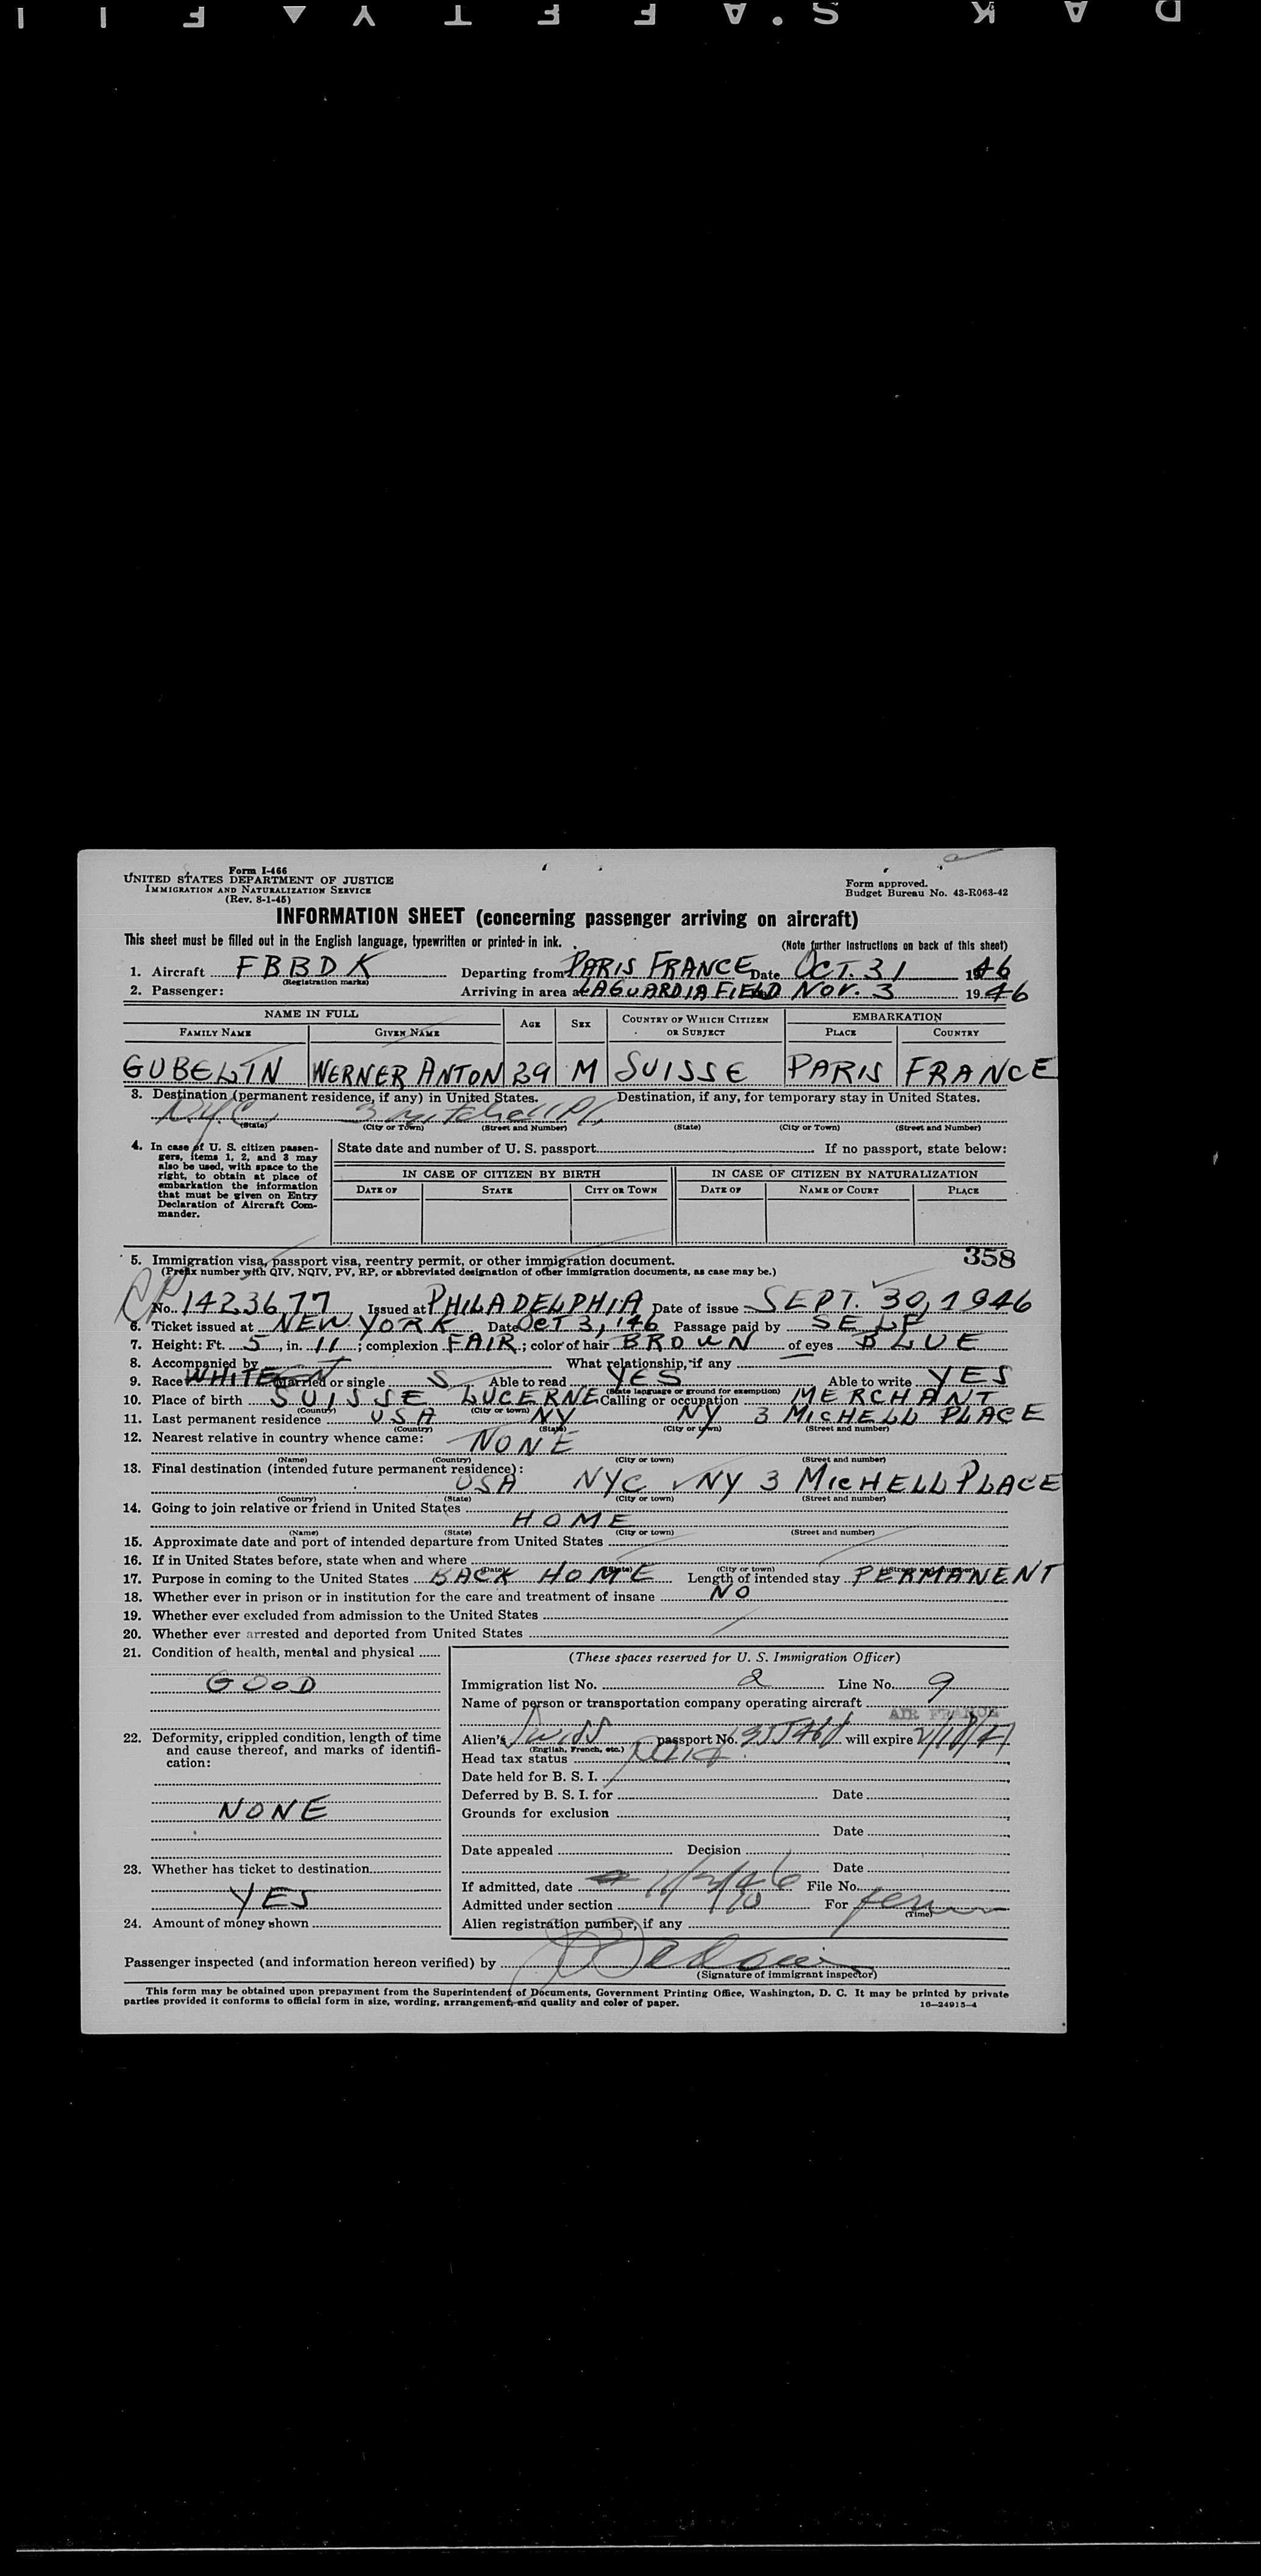 Form I-466
UNITED STATES DEPARTMENT OF JUSTICE
IMMIGRATION AND NATURALIZATION SERVICE
(Rev. 8-1-45)
Form approved.
Budget Bureau No. 43-R063-42
INFORMATION SHEET (concerning passenger arriving on aircraft)
This sheet must be filled out in the English language, typewritten or printed in ink.
(Note further instructions on back of this sheet)
1. Aircraft FBBDK Departing from PARIS FRANCE Date OCT. 31 1946
(Registration marks)
2. Passenger: Arriving in area at LAGUARDIA FIELD NOV. 3 1946
NAME IN FULL AGE SEX COUNTRY OF WHICH CITIZEN OR SUBJECT EMBARKATION
FAMILY NAME GIVEN NAME PLACE COUNTRY
GUBELIN WERNER ANTON 39 M SUISSE PARIS FRANCE
3. Destination (permanent residence, if any) in United States. Destination, if any, for temporary stay in United States.
NYC 3 Mitchell Pl
(State) (City or Town) (Street and Number) (State) (City or Town) (Street and Number)
4. In case of U. S. citizen passengers, items 1, 2, and 3 may also be used, with space to the right, to obtain at place of embarkation the information that must be given on Entry Declaration of Aircraft Commander.
State date and number of U. S. passport If no passport, state below:
IN CASE OF CITIZEN BY BIRTH IN CASE OF CITIZEN BY NATURALIZATION
DATE OF STATE CITY OR TOWN DATE OF NAME OF COURT PLACE
358
5. Immigration visa, passport visa, reentry permit, or other immigration document.
(Prefix number with QIV, NQIV, PV, RP, or abbreviated designation of other immigration documents, as case may be.)
RP No. 1423677 Issued at PHILADELPHIA Date of issue SEPT. 30, 1946
6. Ticket issued at NEW YORK Date OCT 3, '46 Passage paid by SELF
7. Height: Ft. 5, in. 11; complexion FAIR; color of hair BROWN of eyes BLUE
8. Accompanied by What relationship, if any
9. Race WHITE Married or single S Able to read YES Able to write YES
(State language or ground for exemption)
10. Place of birth SUISSE LUCERNE Calling or occupation MERCHANT
(Country) (City or town)
11. Last permanent residence USA NY NY 3 MICHELL PLACE
(Country) (State) (City or town) (Street and number)
12. Nearest relative in country whence came: NONE
(Name) (Country) (City or town) (Street and number)
13. Final destination (intended future permanent residence):
USA NYC NY 3 MICHELL PLACE
(Country) (State) (City or town) (Street and number)
14. Going to join relative or friend in United States
HOME
(Name) (State) (City or town) (Street and number)
15. Approximate date and port of intended departure from United States
16. If in United States before, state when and where
(Date) (State) (City or town) (Street and number)
17. Purpose in coming to the United States BACK HOME Length of intended stay PERMANENT
18. Whether ever in prison or in institution for the care and treatment of insane NO
19. Whether ever excluded from admission to the United States
20. Whether ever arrested and deported from United States
21. Condition of health, mental and physical
GOOD
22. Deformity, crippled condition, length of time and cause thereof, and marks of identification:
NONE
23. Whether has ticket to destination
YES
24. Amount of money shown
(These spaces reserved for U. S. Immigration Officer)
Immigration list No. 2 Line No. 9
Name of person or transportation company operating aircraft
AIR FRANCE
Alien's Swiss passport No. will expire
(English, French, etc.)
Head tax status
Date held for B. S. I.
Deferred by B. S. I. for Date
Grounds for exclusion
Date
Date appealed Decision
Date
If admitted, date File No.
Admitted under section For
(Time)
Alien registration number, if any
Passenger inspected (and information hereon verified) by
(Signature of immigrant inspector)
This form may be obtained upon prepayment from the Superintendent of Documents, Government Printing Office, Washington, D. C. It may be printed by private
parties provided it conforms to official form in size, wording, arrangement, and quality and color of paper.
16—24915-4